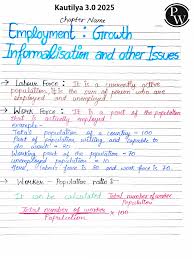 Kautilya 3.0 2025
PW
Chapter Name
Employment: Growth
Informalisation and other Issues
→ Labour Force : It is a currently active
population. It is the sum of person who are
employed and unemployed
→ Work Force : It is a part of the population
that is actually employed
example-
Total population of a country = 100
Part of population willing and capable to
do work = 80
Working part of the population = 70
unemployed population = 10
Here, labour force is 80 and work force is 70.
→ Worker Population ratio :-
It can be calculated Total number of worker
Population
Total number of worker × 100
Population